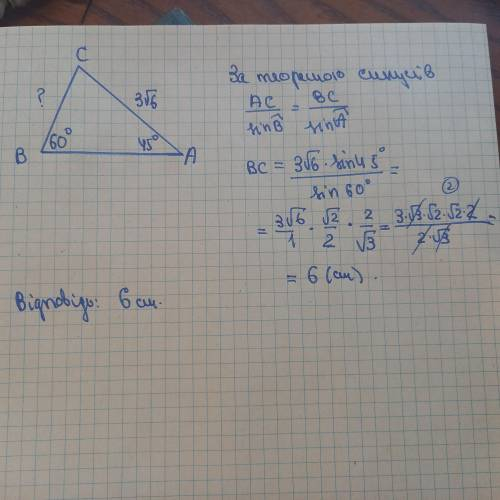 C
?
3√6
B
60°
45°
A
За теоремою синусів
AC/sin B̂ = BC/sin Â
BC = 3√6 · sin 45°/sin 60° =
= 3√6/1 · √2/2 · 2/√3 = 3·√3·√2·√2·2/2·√3 =
②
= 6 (см).
Відповідь: 6 см.